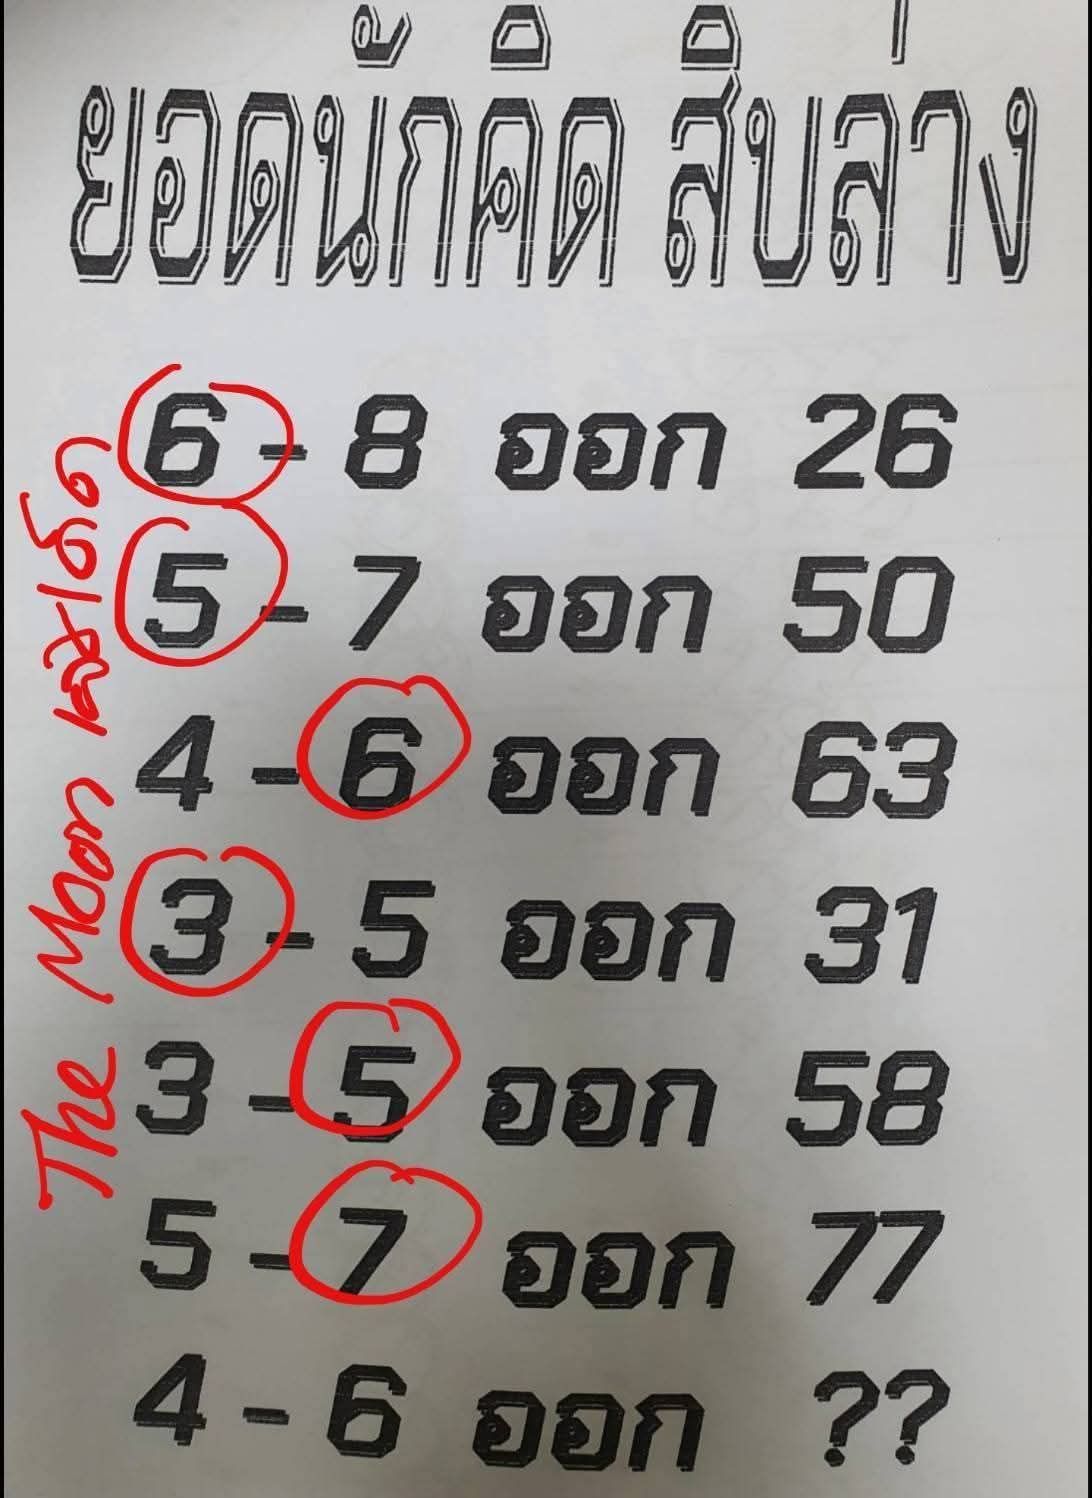 ยอดนักคิด สิบล่าง
6 - 8 ออก 26
5 - 7 ออก 50
4 - 6 ออก 63
3 - 5 ออก 31
3 - 5 ออก 58
5 - 7 ออก 77
4 - 6 ออก ??
The Moon เลขเด็ด